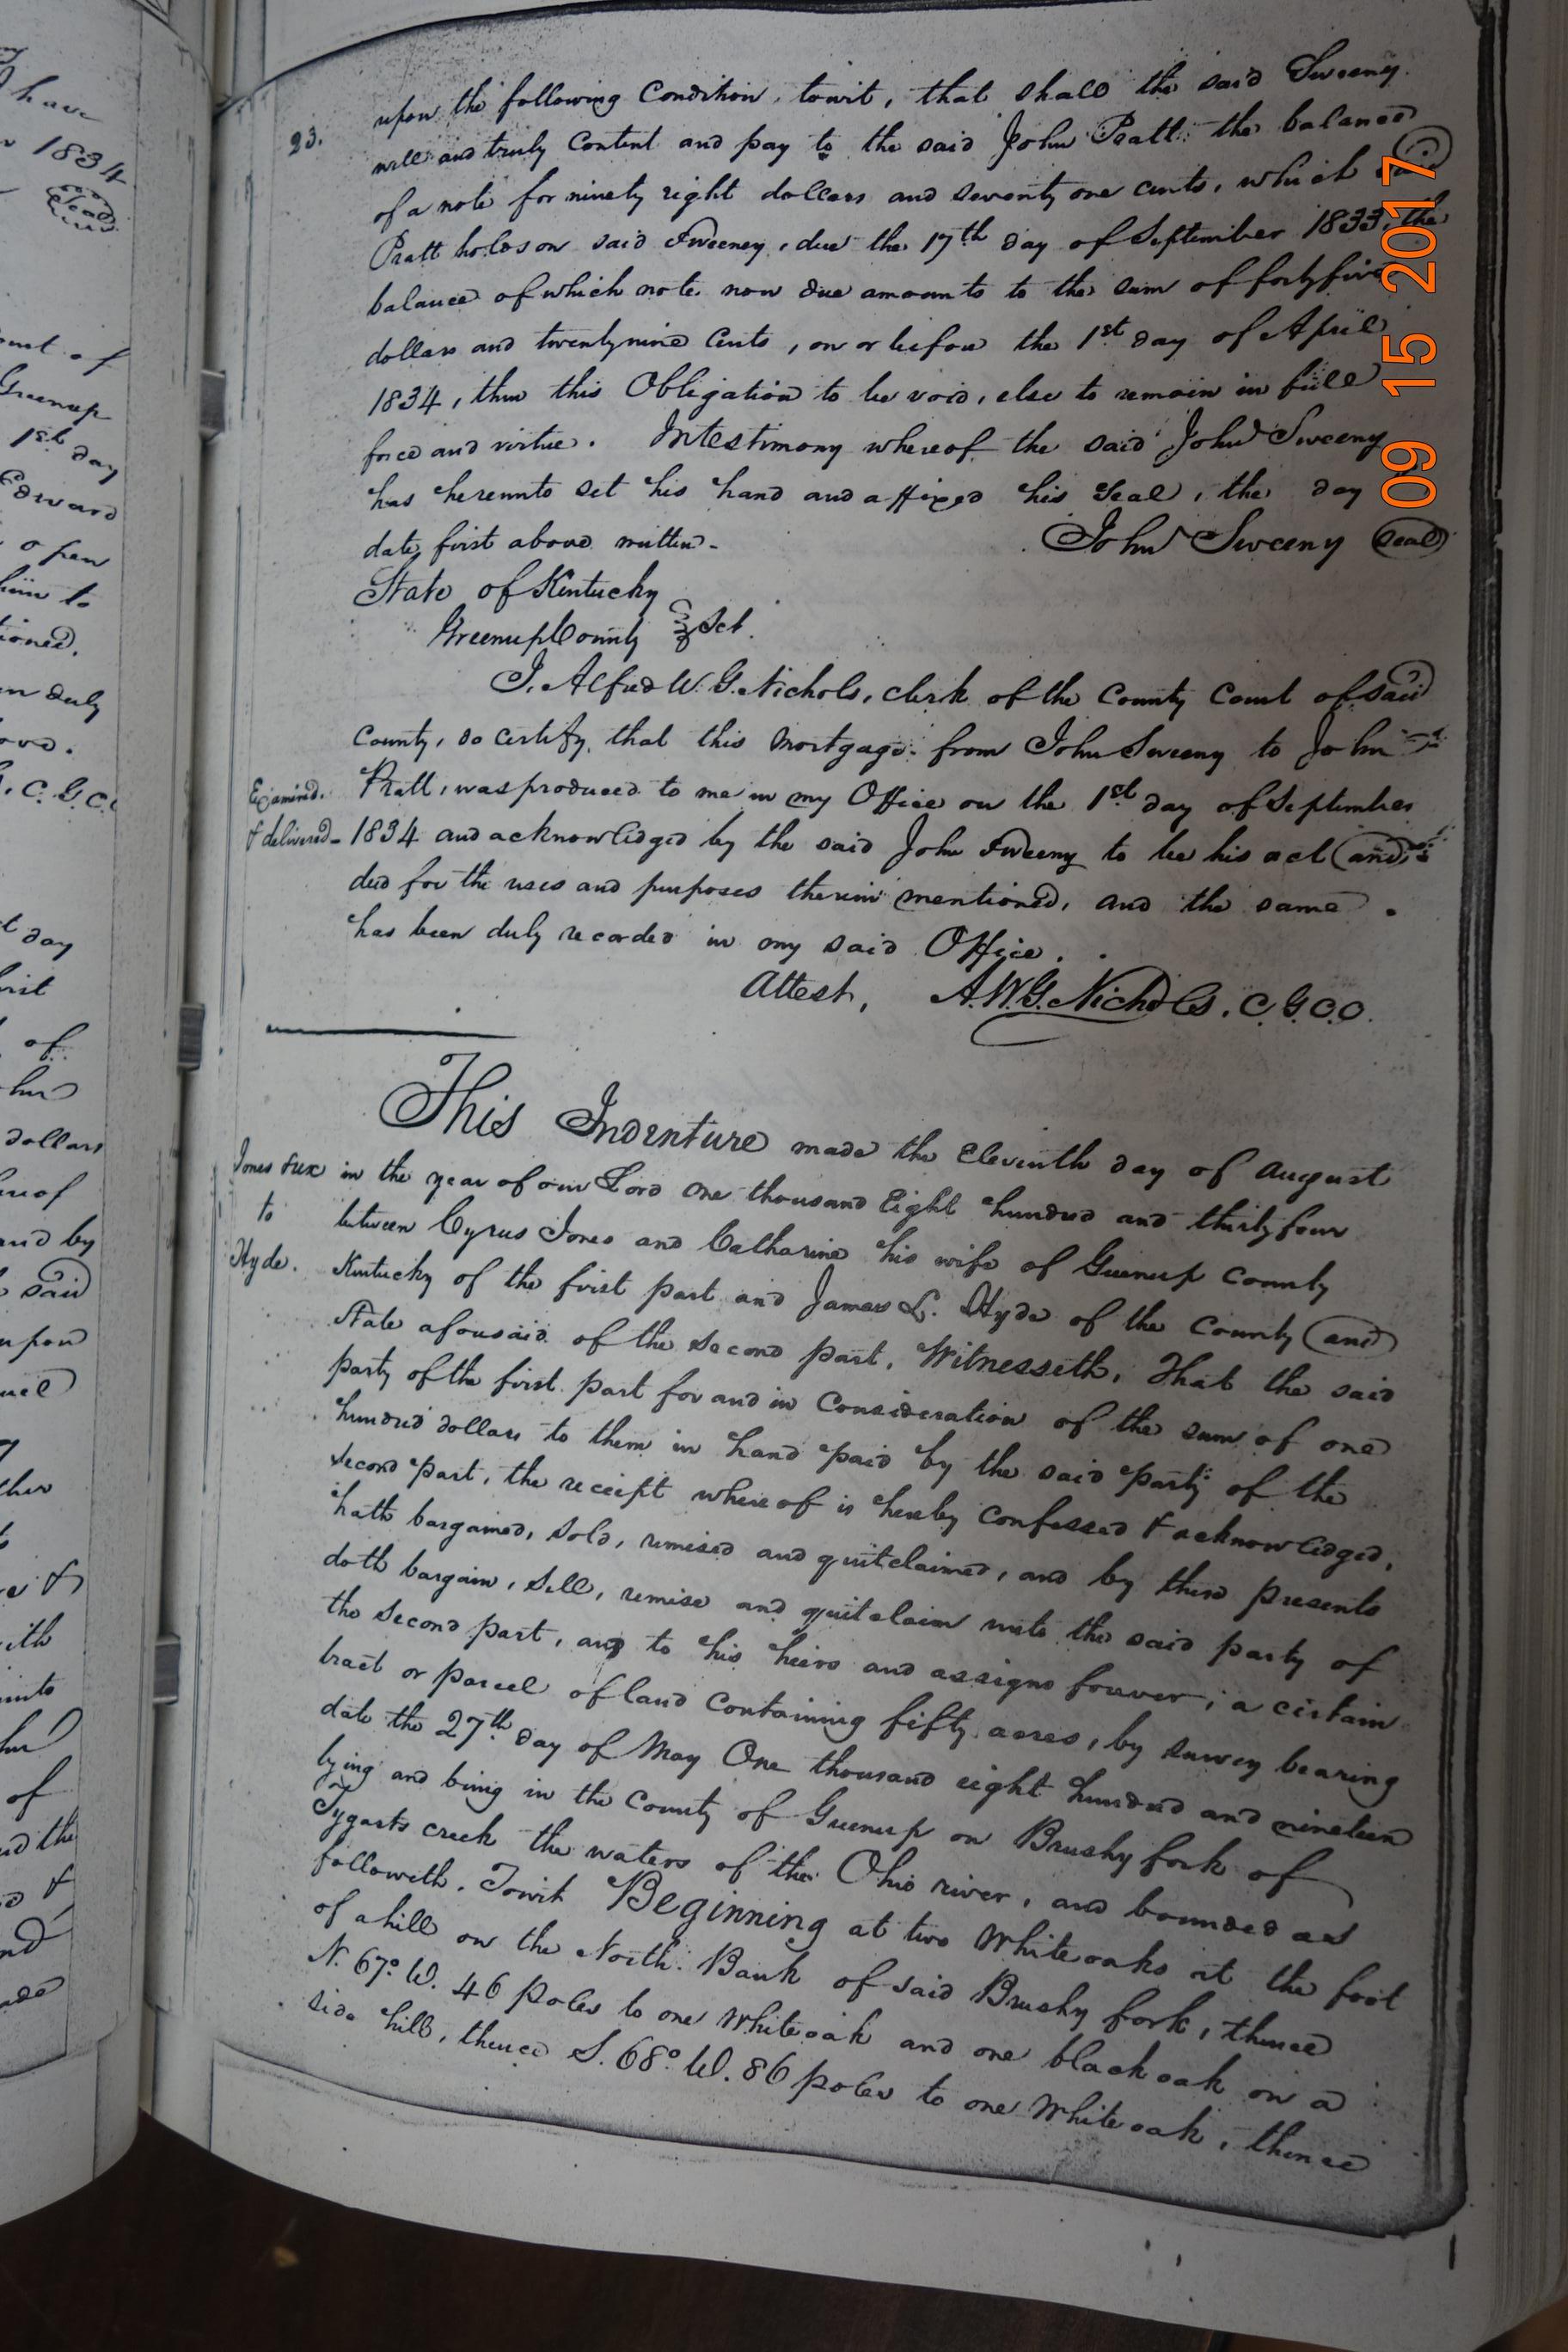 have
1834
Seal
of
Greenup
1st day
Edward
open
him to
tioned.
duly
. C. G. C. C
day
of
dollars
and by
said
upon
of
and the
23.
upon the following Condition, towit, that shall the said Sweeny
well and truly Content and pay to the said John Pratt the balance
of a note for ninety eight dollars and seventy one cents, which said
Pratt holds on said Sweeney, due the 17th day of September 1833, the
balance of which note now due amounts to the sum of forty five
dollars and twenty nine Cents, on or before the 1st day of April
1834, then this Obligation to be void, else to remain in full
force and virtue. In testimony whereof the said John Sweeny
has hereunto set his hand and affixed his Seal, the day
date first above written-
John Sweeny Seal
State of Kentucky
Greenup County Sct.
I, Alfred W. G. Nichols, clerk of the County Court of said
County, do certify, that this Mortgage from John Sweeny to John
Examined.
Pratt, was produced to me in my Office on the 1st day of September
& delivered-
1834 and acknowledged by the said John Sweeny to be his act and
deed for the uses and purposes therein mentioned, and the same
has been duly recorded in my said Office.
Attest, A. W. G. Nichols. C. G. C. C.
This Indenture made the Eleventh day of August
Jones & ux
in the year of our Lord One thousand Eight hundred and thirty four
to
between Cyrus Jones and Catharine his wife of Greenup County
Hyde.
Kentucky of the first part and James L. Hyde of the County and
State aforesaid of the second part, Witnesseth, That the said
party of the first part for and in Consideration of the sum of one
hundred dollars to them in hand paid by the said party of the
second part, the receipt whereof is hereby confessed & acknowledged,
hath bargained, sold, remised and quitclaimed, and by these presents
doth bargain, sell, remise and quitclaim unto the said party of
the second part, and to his heirs and assigns forever; a certain
tract or parcel of land containing fifty acres, by survey bearing
date the 27th day of May One thousand eight hundred and nineteen
lying and being in the County of Greenup on Brushy fork of
Tygarts creek the waters of the Ohio river, and bounded as
followeth. Towit Beginning at two Whiteoaks at the foot
of a hill on the North Bank of said Brushy fork, thence
N. 67° W. 46 poles to one Whiteoak and one blackoak on a
side hill, thence S. 68° W. 86 poles to one Whiteoak, thence
09 15 2017